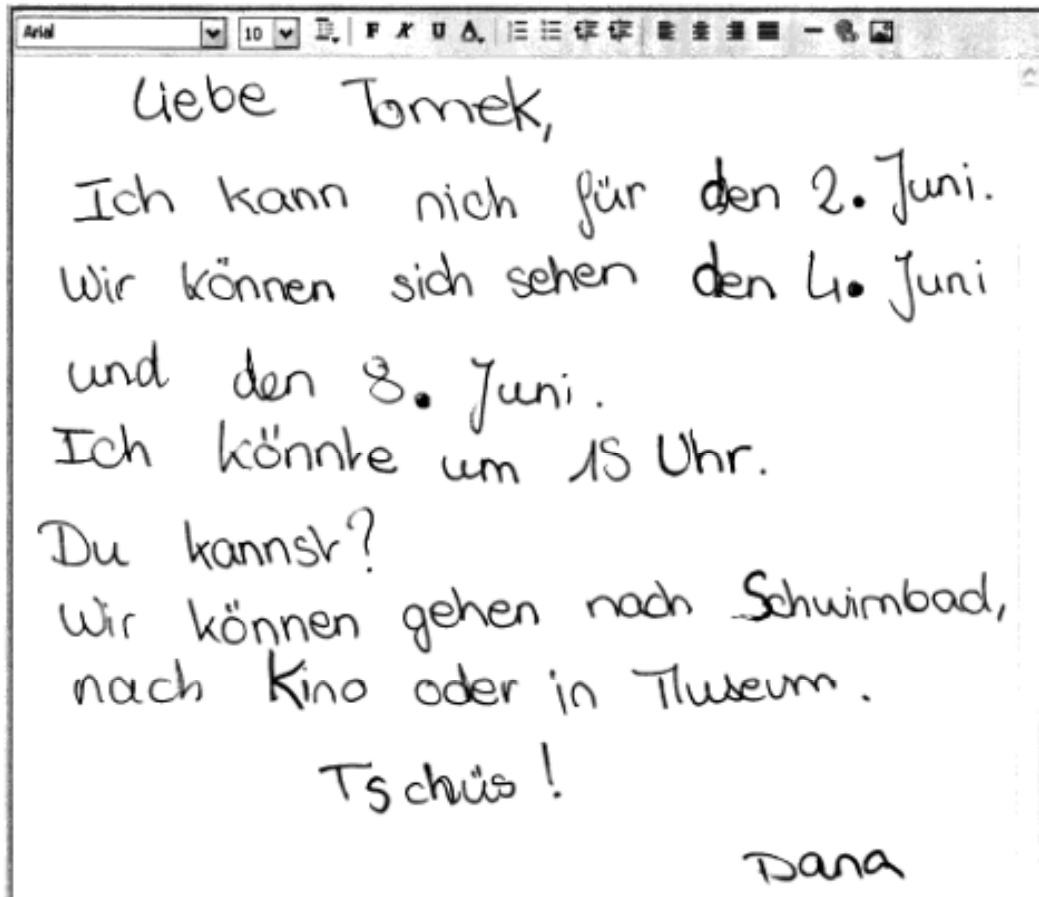 Arial 10 F K U A
Liebe Tomek,
Ich kann nich für den 2. Juni.
Wir können sich sehen den 4. Juni
und den 8. Juni.
Ich könnte um 15 Uhr.
Du kannst?
Wir können gehen nach Schwimbad,
nach Kino oder in Museum.
Tschüs!
Dana